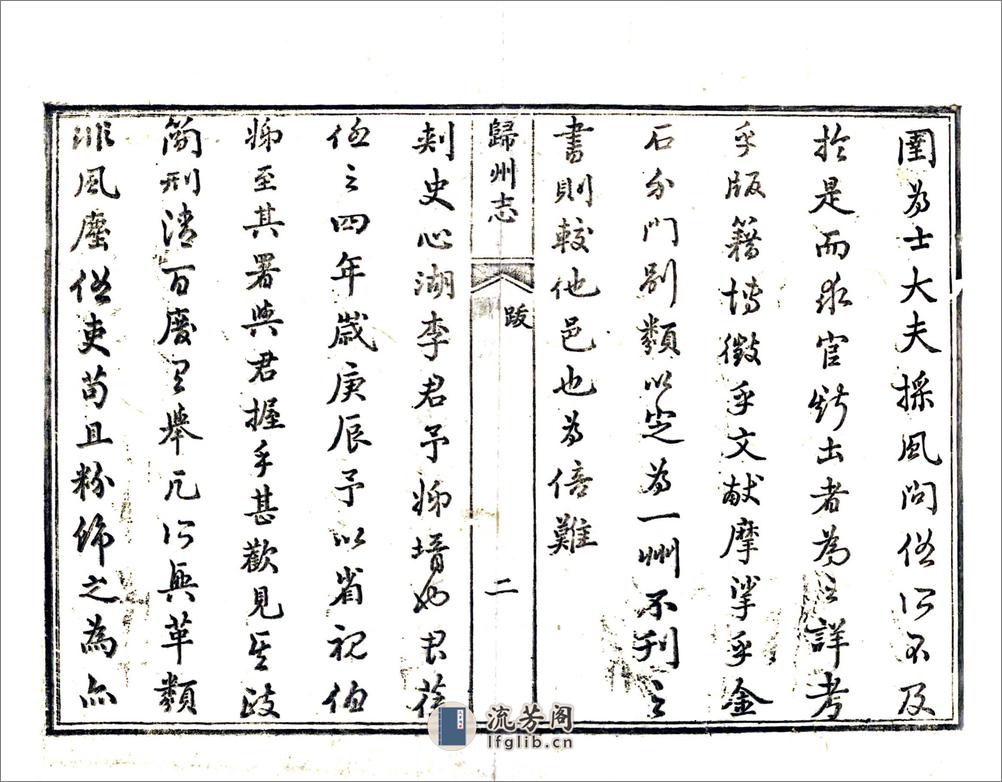 圍為士大夫採風問俗所不及
於是而求官斯土者為之詳考
乎版籍博徵乎文献摩挲乎金
石分門別類以定為一州不刊之
書則較他邑也為倍難
歸州志
跋
二
刺史心湖李君予姊壻也君蒞
任之四年歲庚辰予以省視伯
姊至其署與君握手甚歡見其政
簡刑清百廢具舉凡所興革類
非風塵俗吏苟且粉飾之為亦
流芳阁
lfglib.cn